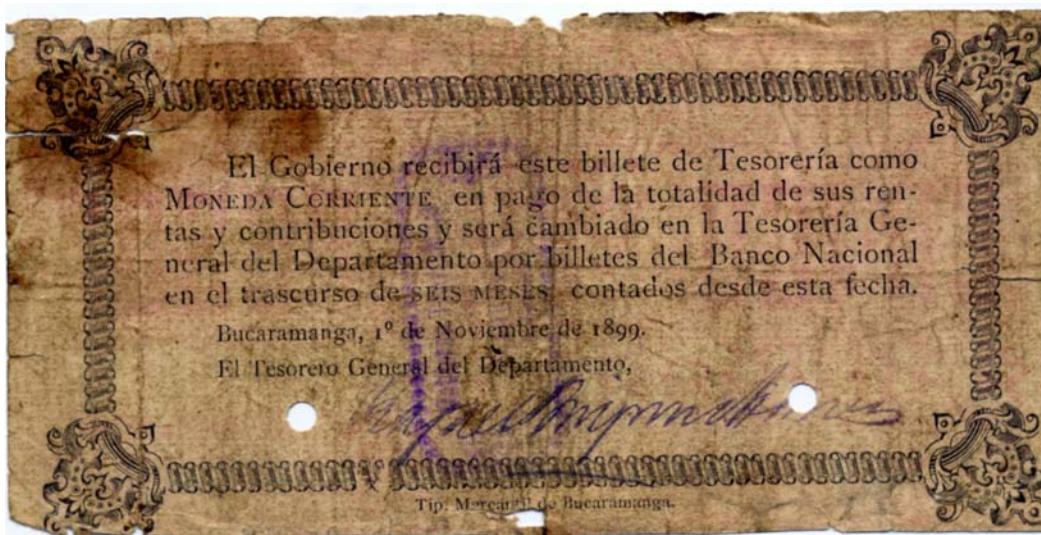 El Gobierno recibirá este billete de Tesorería como
MONEDA CORRIENTE en pago de la totalidad de sus ren-
tas y contribuciones y será cambiado en la Tesorería Ge-
neral del Departamento por billetes del Banco Nacional
en el trascurso de SEIS MESES contados desde esta fecha.
Bucaramanga, 1º de Noviembre de 1899.
El Tesorero General del Departamento,
Tip. Mercantil de Bucaramanga.